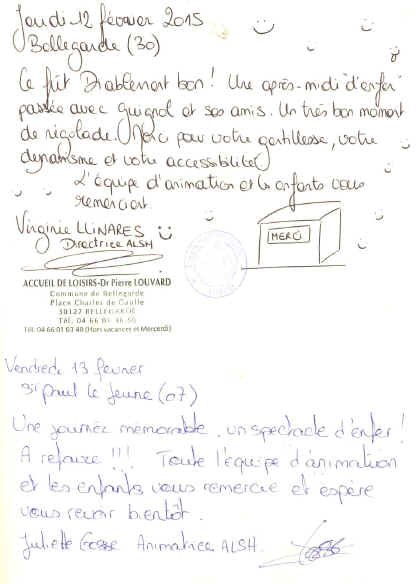 Jeudi 12 février 2015
Bellegarde (30)
Ce fût Diablement bon! Une après-midi "d'enfer"
passée avec guignol et ses amis. Un très bon moment
de rigolade. Merci pour votre gentillesse, votre
dynamisme et votre accessibilité
L'équipe d'animation et les enfants vous
remercient.
Virginie LLINARES
Directrice ALSH
MERCI
ACCUEIL DE LOISIRS-Dr Pierre LOUVARD
Commune de Bellegarde
Place Charles de Gaulle
30127 BELLEGARDE
Tél. 04 66 01
Tél. 04 66 01 63 48 (Hors vacances et Mercredi)
Vendredi 13 février
St Paul le Jeune (07)
Une journée mémorable, un spectacle d'enfer!
A refaire !!! Toute l'équipe d'animation
et les enfants vous remercie et espère
vous revoir bientôt.
Juliette Animatrice ALSH.